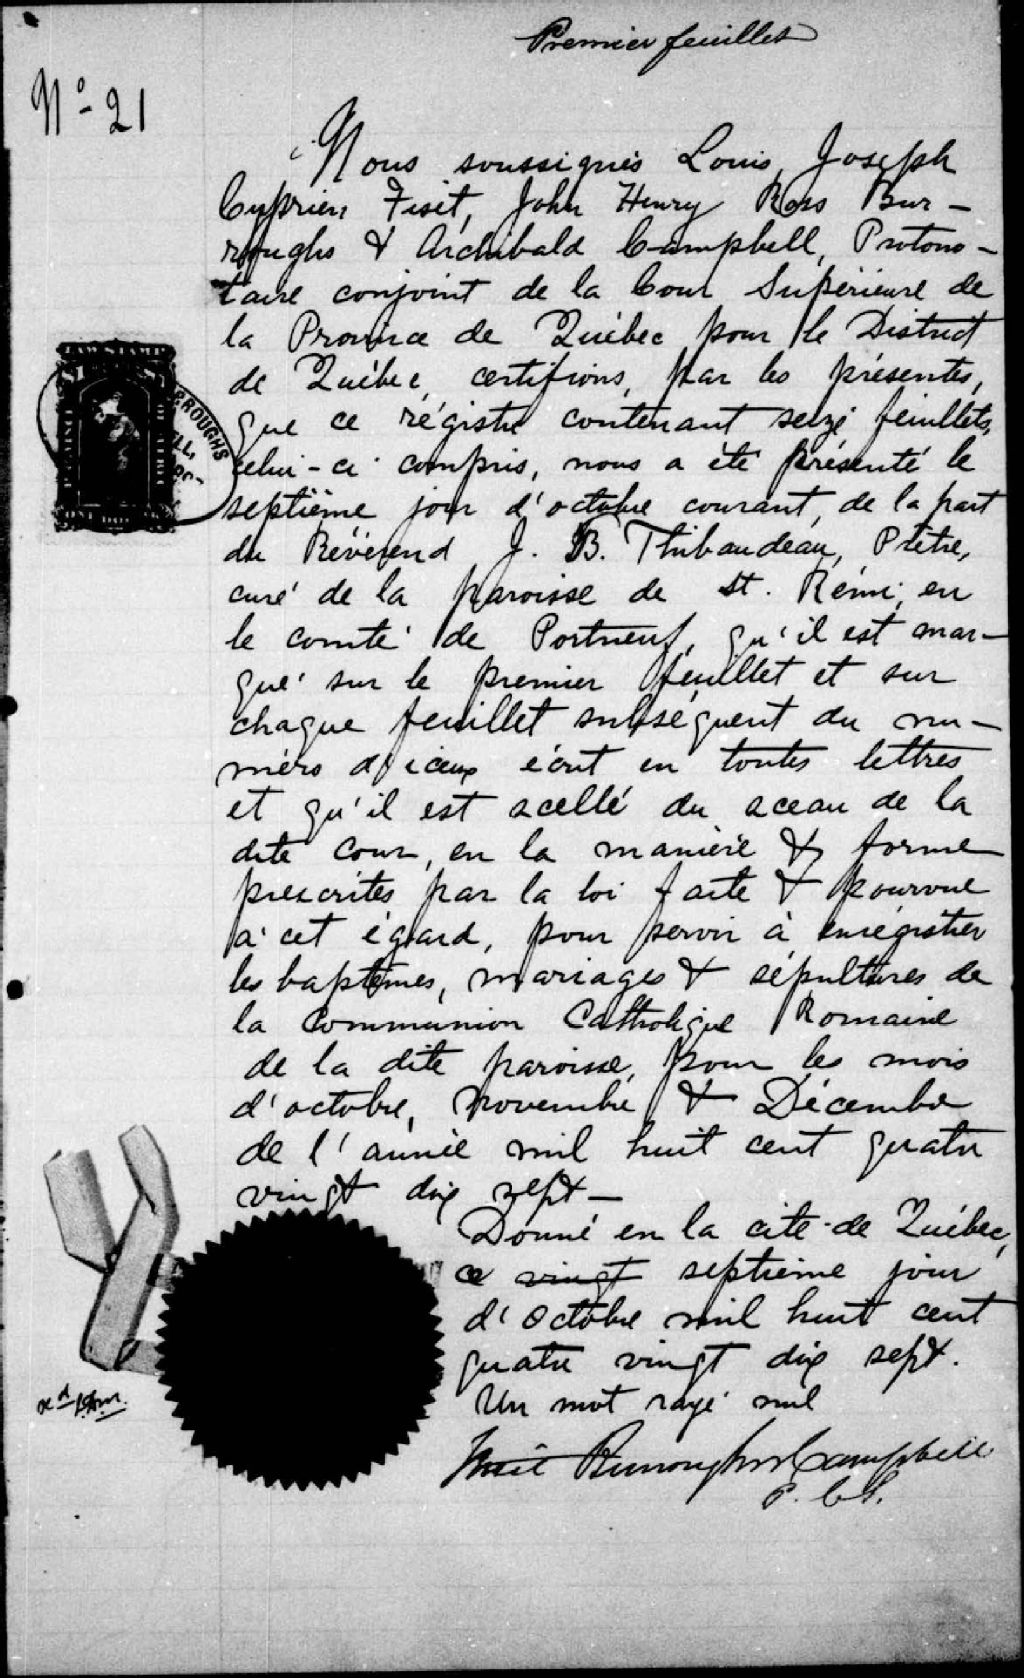 Premier feuillet
No- 21
Nous soussignés Louis, Joseph
Cyprien Fiset, John Henry Ross Bur-
roughs & Archibald Campbell, Protono-
taire conjoint de la Cour Supérieure de
la Province de Québec pour le District
de Québec, certifions, par les présentes,
que ce régistre contenant seize feuillets,
celui-ci compris, nous a été présenté le
septième jour d'octobre courant, de la part
du Révérend J. B. Thibaudeau, Prêtre,
curé de la paroisse de St. Rémi, en
le comté de Portneuf, qu'il est mar-
qué sur le premier feuillet et sur
chaque feuillet subséquent du nu-
méro d'iceux écrit en toutes lettres
et qu'il est scellé du sceau de la
dite Cour, en la manière & forme
prescrites par la loi faite & pourvue
à cet égard, pour servir à enrégistrer
les baptêmes, mariages & sépultures de
la Communion Catholique Romaine
de la dite paroisse, pour les mois
d'octobre, Novembre & Décembre
de l'année mil huit cent quatre
vingt dix sept-
Donné en la cité de Québec,
ce vingt septième jour
d'octobre mil huit cent
quatre vingt dix sept.
Un mot rayé nul
Fiset Burroughs & Campbell
P. C. S.
LAW STAMP
RROUGHS